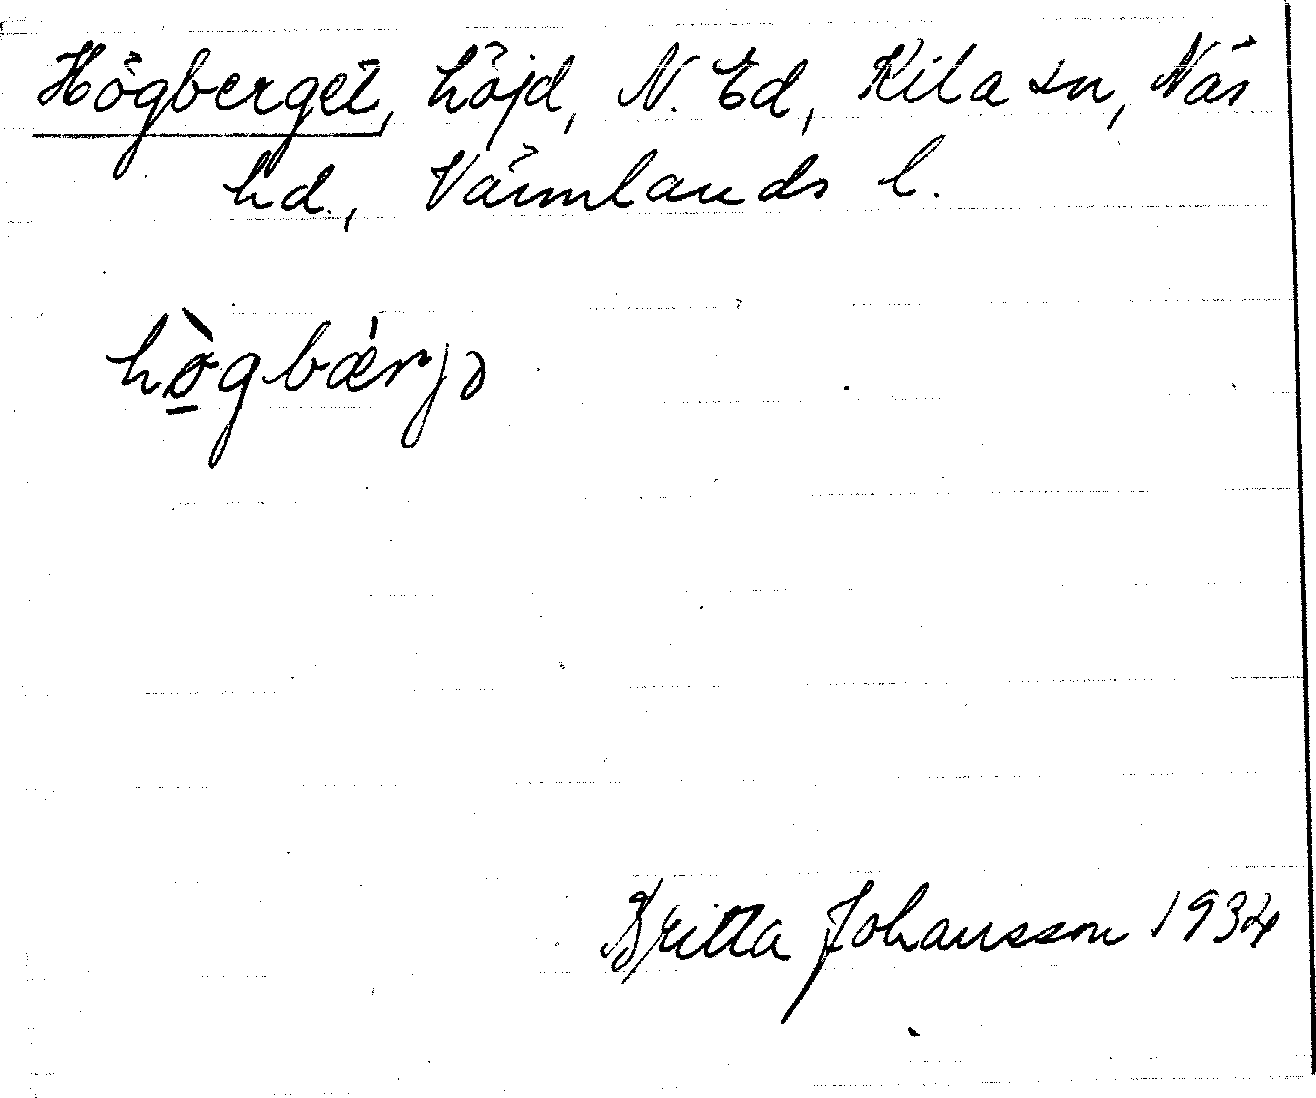 Högberget, höjd, N. Ed, Kila sn, Näs
hd., Värmlands l.
hògbæ̍rjə
Britta Johansson 1934